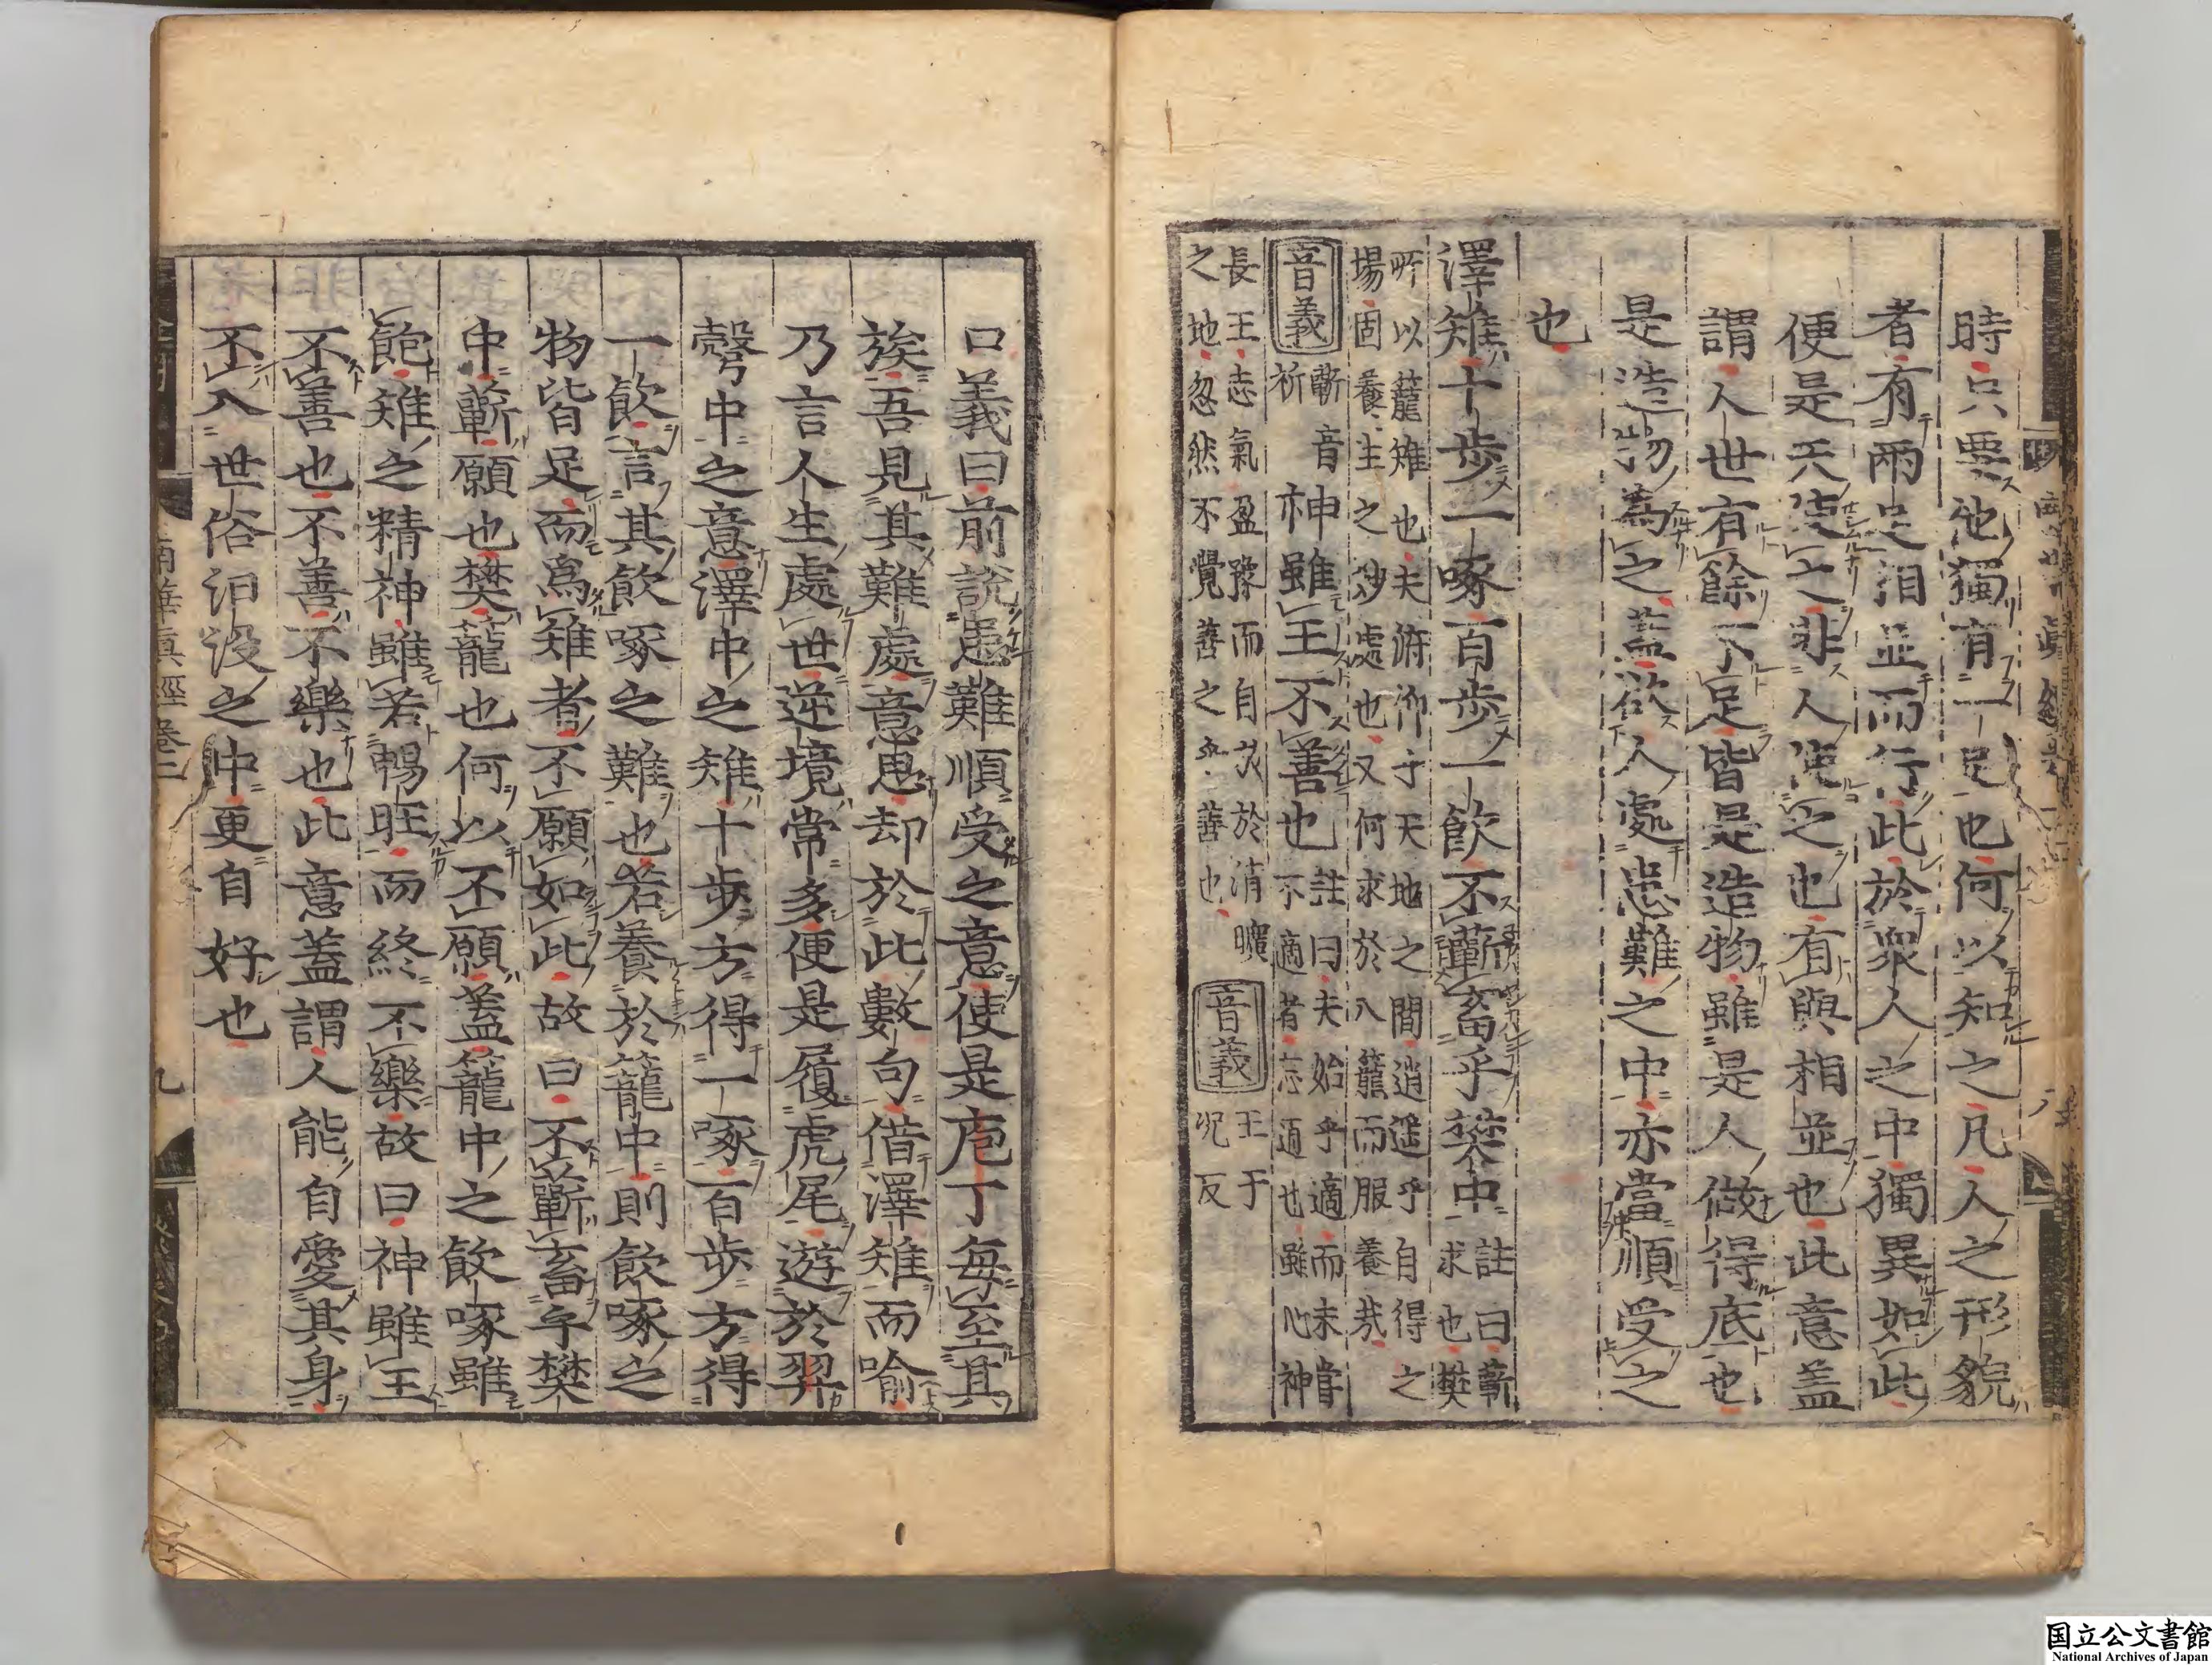 時只要他獨有一足也何以知之凡人之形貌
者有兩足相並而行此於衆人之中獨異如此
便是天使之非人使之也有與相並也此意盖
謂人世有餘不足皆是造物雖是人做得底也
是造物爲之盖欲人處患難之中亦當順受之
也
澤雉十步一啄百步一飮不蘄畜乎樊中註曰蘄求也樊
所以籠雉也夫俯仰乎天地之間逍遥乎自得之
場固養生之妙處也又何求於入籠而服養㢤
音義蘄音祈神雖王不善也註曰夫始乎適而未甞不適者忘適也雖心神
長王志氣盈豫而自放於清曠
之地忽然不覺善之爲善也音義王于況反
口義曰前說患難順受之意使是庖丁每至其
族吾見其難處意思却於此數句借澤雉而喻
乃言人生處世逆境常多便是履虎尾遊於羿
彀中之意澤中之雉十步方得一啄百步方得
一飮言其飮啄之難也若養於籠中則飮啄之
物皆足而爲雉者不願如此故曰不蘄畜乎樊
中蘄願也樊籠也何以不願盖籠中之飮啄雖
飽雉之精神雖若暢旺而終不樂故曰神雖王
不善也不善不樂也此意蓋謂人能自愛其身
不入世俗汩没之中更自好也
南華眞經卷二
九
国立公文書館
National Archives of Japan